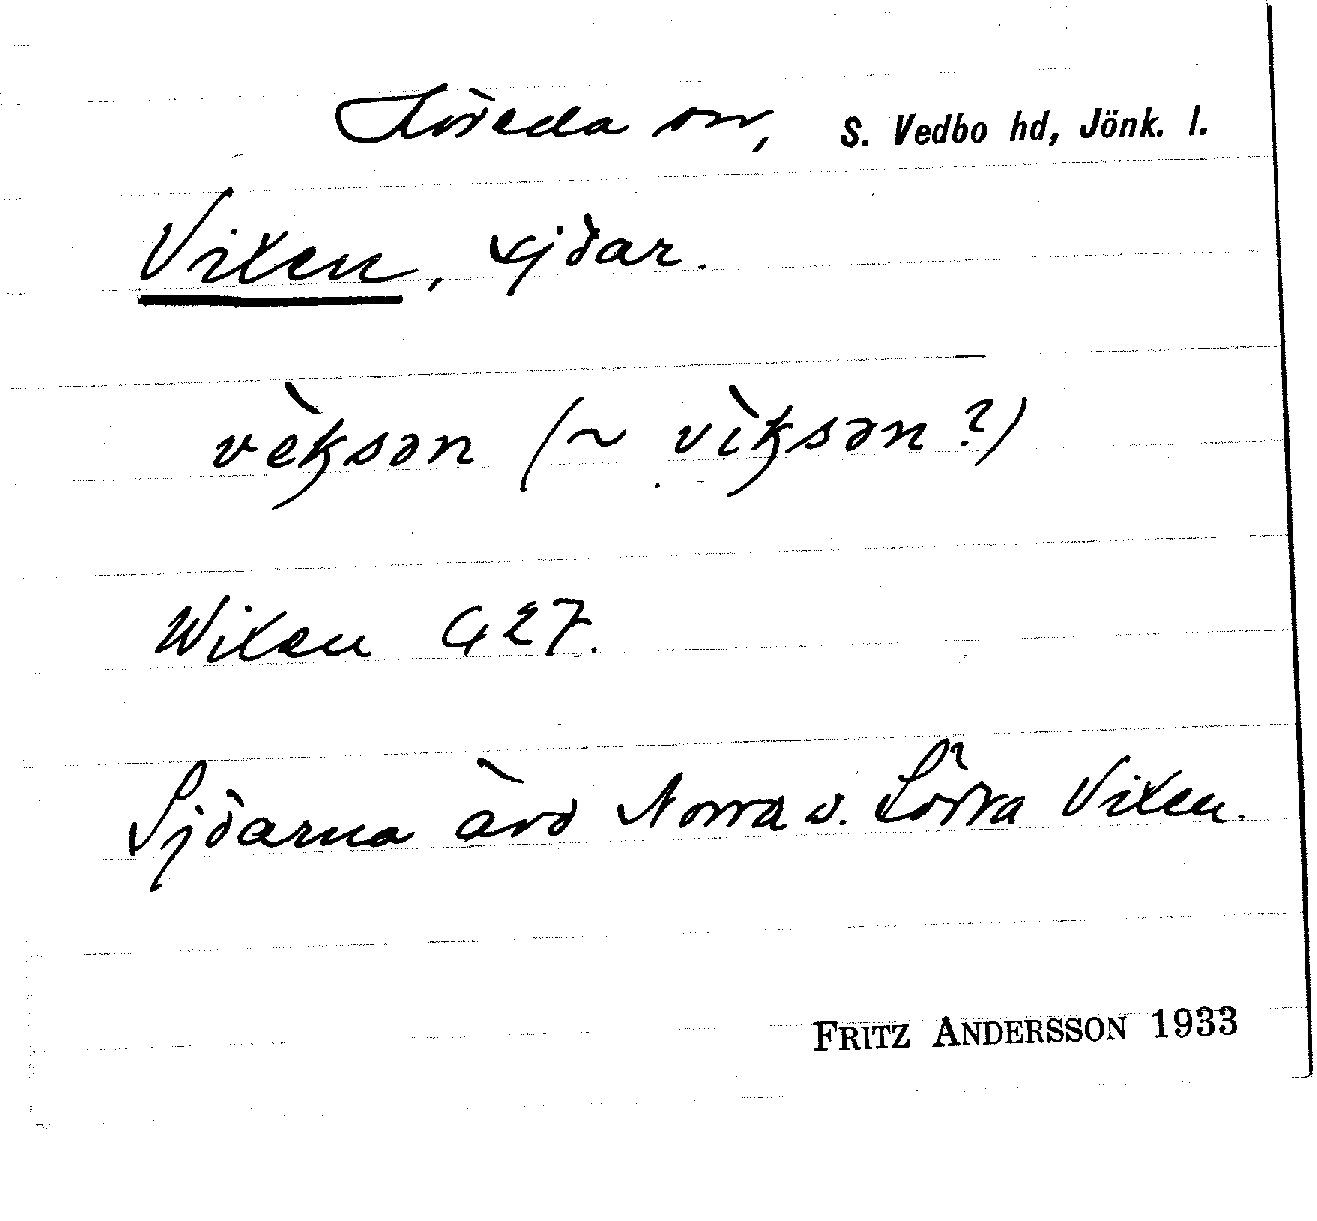 Höreda sn, S. Vedbo hd, Jönk. l.
Vixen, sjöar.
vèksən (~ vìksən?)
Wixen G 27.
Sjöarna äro Norra o. Södra Vixen.
FRITZ ANDERSSON 1933